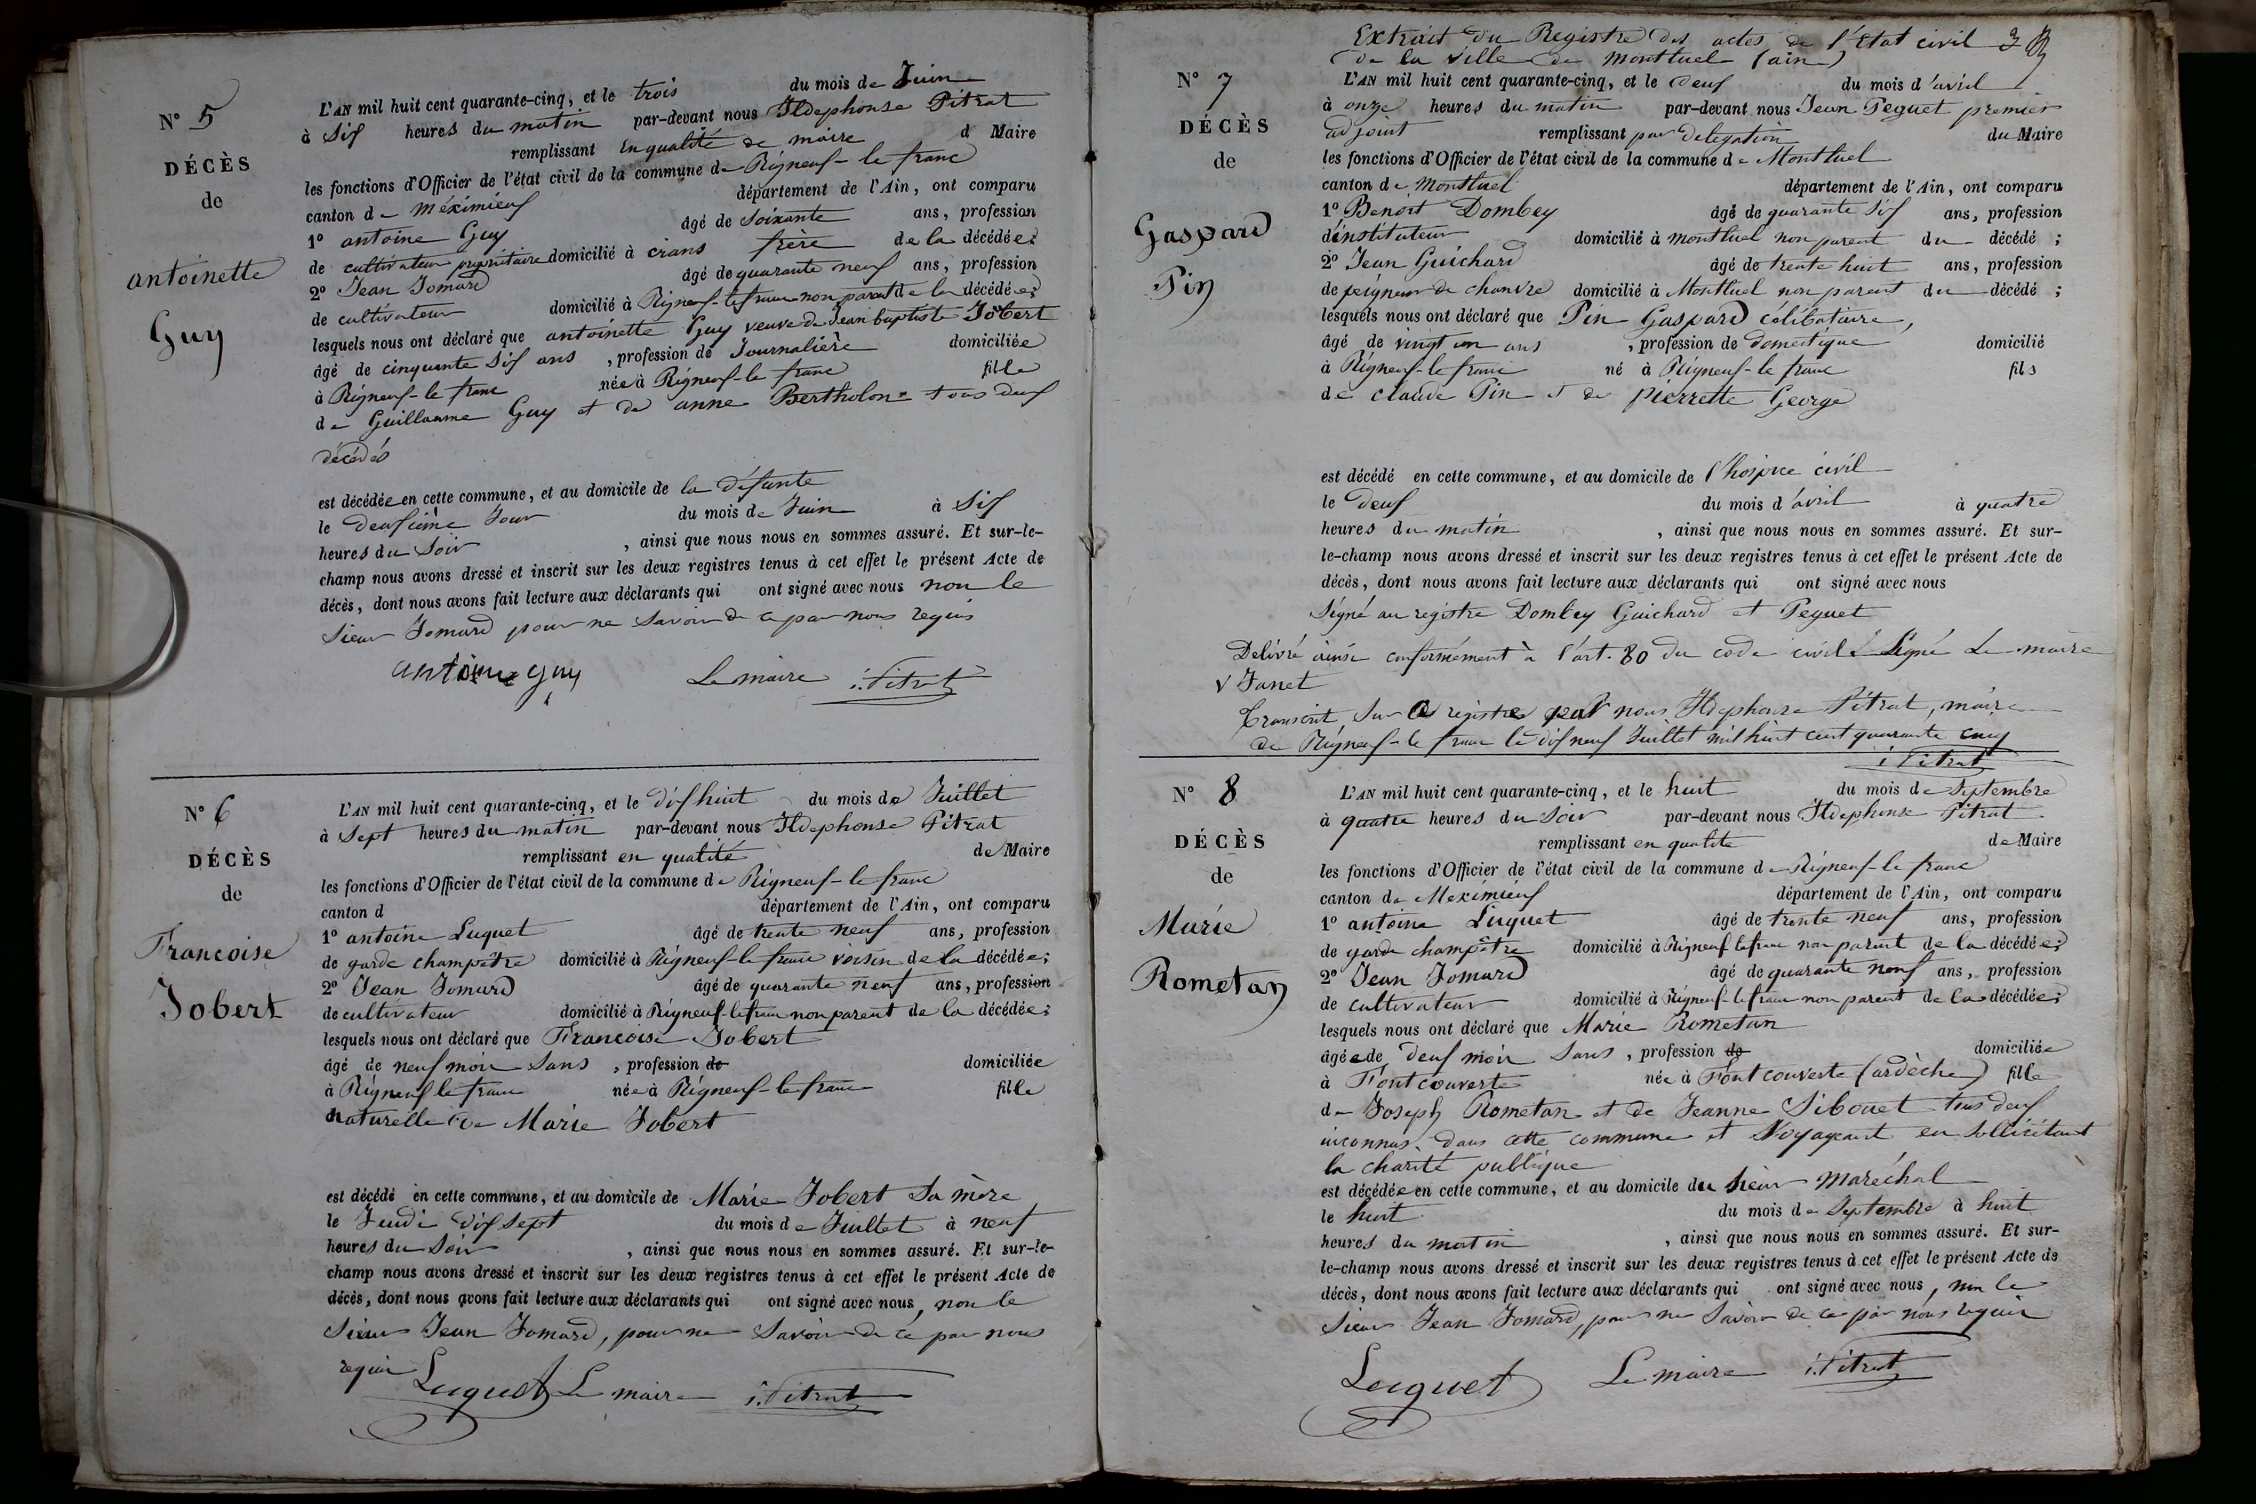 N° 5
DÉCÈS
de
antoinette
Guy
L'AN mil huit cent quarante-cinq, et le trois du mois de Juin
à Six heures du matin par-devant nous Ildephonse Pitrat
remplissant En qualité de maire d Maire
les fonctions d'Officier de l'état civil de la commune de Rigneuf-le franc
canton de méximieux département de l'Ain, ont comparu
1° antoine Guy âgé de Soixante ans, profession
de cultivateur propriétaire domicilié à crans frère de la décédée;
2° Jean Jomard âgé de quarante neuf ans, profession
de cultivateur domicilié à Rigneuf-le franc non parent de la décédée;
lesquels nous ont déclaré que antoinette Guy veuve de Jean baptiste Jobert
âgé de cinquante Six ans, profession de Journalière domiciliée
à Rigneuf-le franc née à Rigneuf-le franc fille
de Guillaume Guy et de anne Bertholon tous deux
décédés
est décédée en cette commune, et au domicile de la défunte
le deuxième Jour du mois de Juin à Six
heures du Soir, ainsi que nous nous en sommes assuré. Et sur-le-
champ nous avons dressé et inscrit sur les deux registres tenus à cet effet le présent Acte de
décès, dont nous avons fait lecture aux déclarants qui ont signé avec nous non le
Sieur Jomard pour ne Savoir de ce par nous requis
antoine guy Le maire i. Pitrat
N° 6
DÉCÈS
de
Francoise
Jobert
L'AN mil huit cent quarante-cinq, et le dix huit du mois de Juillet
à Sept heures du matin par-devant nous Ildephonse Pitrat
remplissant en qualité de Maire
les fonctions d'Officier de l'état civil de la commune de Rigneuf-le franc
canton d département de l'Ain, ont comparu
1° antoine Luquet âgé de trente neuf ans, profession
de garde champêtre domicilié à Rigneuf-le franc voisin de la décédée;
2° Jean Jomard âgé de quarante neuf ans, profession
de cultivateur domicilié à Rigneuf-le franc non parent de la décédée;
lesquels nous ont déclaré que Francoise Jobert
âgé de neuf mois Sans, profession de domiciliée
à Rigneuf le franc née à Rigneuf-le franc fille
naturelle de Marie Jobert
est décédé en cette commune, et au domicile de Marie Jobert Sa mère
le Jeudi dix Sept du mois de Juillet à neuf
heures du Soir, ainsi que nous nous en sommes assuré. Et sur-le-
champ nous avons dressé et inscrit sur les deux registres tenus à cet effet le présent Acte de
décès, dont nous avons fait lecture aux déclarants qui ont signé avec nous, non le
Sieur Jean Jomard, pour ne Savoir de ce par nous
requis Luquet Le maire i. Pitrat
Extrait du Registre des actes de l'Etat civil
de la ville de montluel (ain)
N° 7
DÉCÈS
de
Gaspard
Pin
L'AN mil huit cent quarante-cinq, et le deux du mois d'avril
à onze heures du matin par-devant nous Jean Peguet premier
adjoint remplissant par délégation du Maire
les fonctions d'Officier de l'état civil de la commune de Montluel
canton de Montluel département de l'Ain, ont comparu
1° Benoit Dombey âgé de quarante Six ans, profession
d'instituteur domicilié à montluel non parent du décédé;
2° Jean Guichard âgé de trente huit ans, profession
de peigneur de chanvre domicilié à Montluel non parent du décédé;
lesquels nous ont déclaré que Pin Gaspard célibataire,
âgé de vingt un ans, profession de domestique domicilié
à Rigneuf-le franc né à Rigneuf-le franc fils
de claude Pin et de Pierrette George
est décédé en cette commune, et au domicile de l'hospice civil
le deux du mois d'avril à quatre
heures du matin, ainsi que nous nous en sommes assuré. Et sur-
le-champ nous avons dressé et inscrit sur les deux registres tenus à cet effet le présent Acte de
décès, dont nous avons fait lecture aux déclarants qui ont signé avec nous
Signé au registre Dombey Guichard et Peguet
Délivré ainsi conformément à l'art. 80 du code civil Signé Le maire
Janet
Transcrit Sur ce registre par nous Ildephonse Pitrat, maire
de Rigneuf-le franc le dix neuf Juillet mil huit cent quarante cinq
i. Pitrat
N° 8
DÉCÈS
de
Marie
Rometan
L'AN mil huit cent quarante-cinq, et le huit du mois de Septembre
à quatre heures du Soir par-devant nous Ildephonse Pitrat
remplissant en qualité de Maire
les fonctions d'Officier de l'état civil de la commune de Rigneuf-le franc
canton de Meximieux département de l'Ain, ont comparu
1° antoine Luquet âgé de trente neuf ans, profession
de garde champêtre domicilié à Rigneuf le franc non parent de la décédée;
2° Jean Jomard âgé de quarante neuf ans, profession
de cultivateur domicilié à Rigneuf-le franc non parent de la décédée;
lesquels nous ont déclaré que Marie Rometan
âgée de deux mois Sans, profession de domiciliée
à Fontcouverte née à Fontcouverte (ardèche) fille
de Joseph Rometan et de Jeanne Sibouet tous deux
inconnus dans cette commune et Voyageant en Sollicitant
la charité publique
est décédée en cette commune, et au domicile du Sieur Maréchal
le huit du mois de Septembre à huit
heures du matin, ainsi que nous nous en sommes assuré. Et sur-
le-champ nous avons dressé et inscrit sur les deux registres tenus à cet effet le présent Acte de
décès, dont nous avons fait lecture aux déclarants qui ont signé avec nous, non le
Sieur Jean Jomard, pour ne Savoir de ce par nous requis
Luquet Le maire i. Pitrat